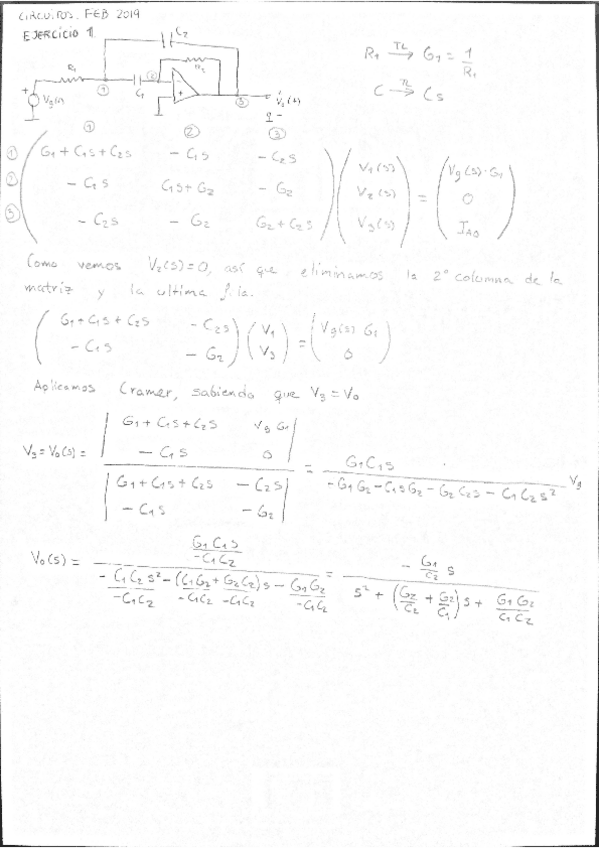 CIRCUITOS. FEB 2019
EJERCICIO 1
C2
R1 C1 R2
① ② ③
+ Vg(s) - + Vo(s) -
R1 →TL G1 = 1/R1
C →TL Cs
① ② ③
① G1 + C1s + C2s   - C1s   - C2s   V1(s)   Vg(s)·G1
② - C1s   C1s + G2   - G2   V2(s) = 0
③ - C2s   - G2   G2 + C2s   V3(s)   IAO
Como vemos V2(s)=0, así que eliminamos la 2º columna de la
matriz y la ultima fila.
G1 + C1s + C2s   - C2s   V1 = Vg(s) G1
- C1s   - G2   V3   0
Aplicamos Cramer, sabiendo que V3 = Vo
V3 = Vo(s) = | G1 + C1s + C2s   Vg G1 ; - C1s   0 | / | G1 + C1s + C2s   - C2s ; - C1s   - G2 | = G1C1s / (-G1G2 - C1sG2 - G2C2s - C1C2s²) Vg
Vo(s) = (G1C1s / -C1C2) / (-C1C2s² / -C1C2 - (C1G2 + G2C2)s / -C1C2 -C1C2 - G1G2 / -C1C2) = (- G1/C2 s) / (s² + (G2/C2 + G2/C1)s + G1G2/C1C2)